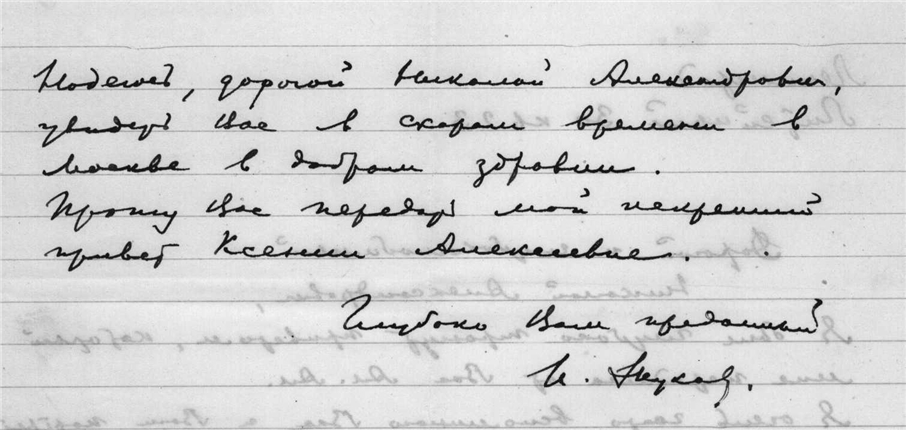 Надеюсь, дорогой Николай Александрович,
увидеть Вас в скором времени в
Москве в добром здравии.
Прошу Вас передать мой искренний
привет Ксении Алексеевне.
Глубоко Вам преданный
И.